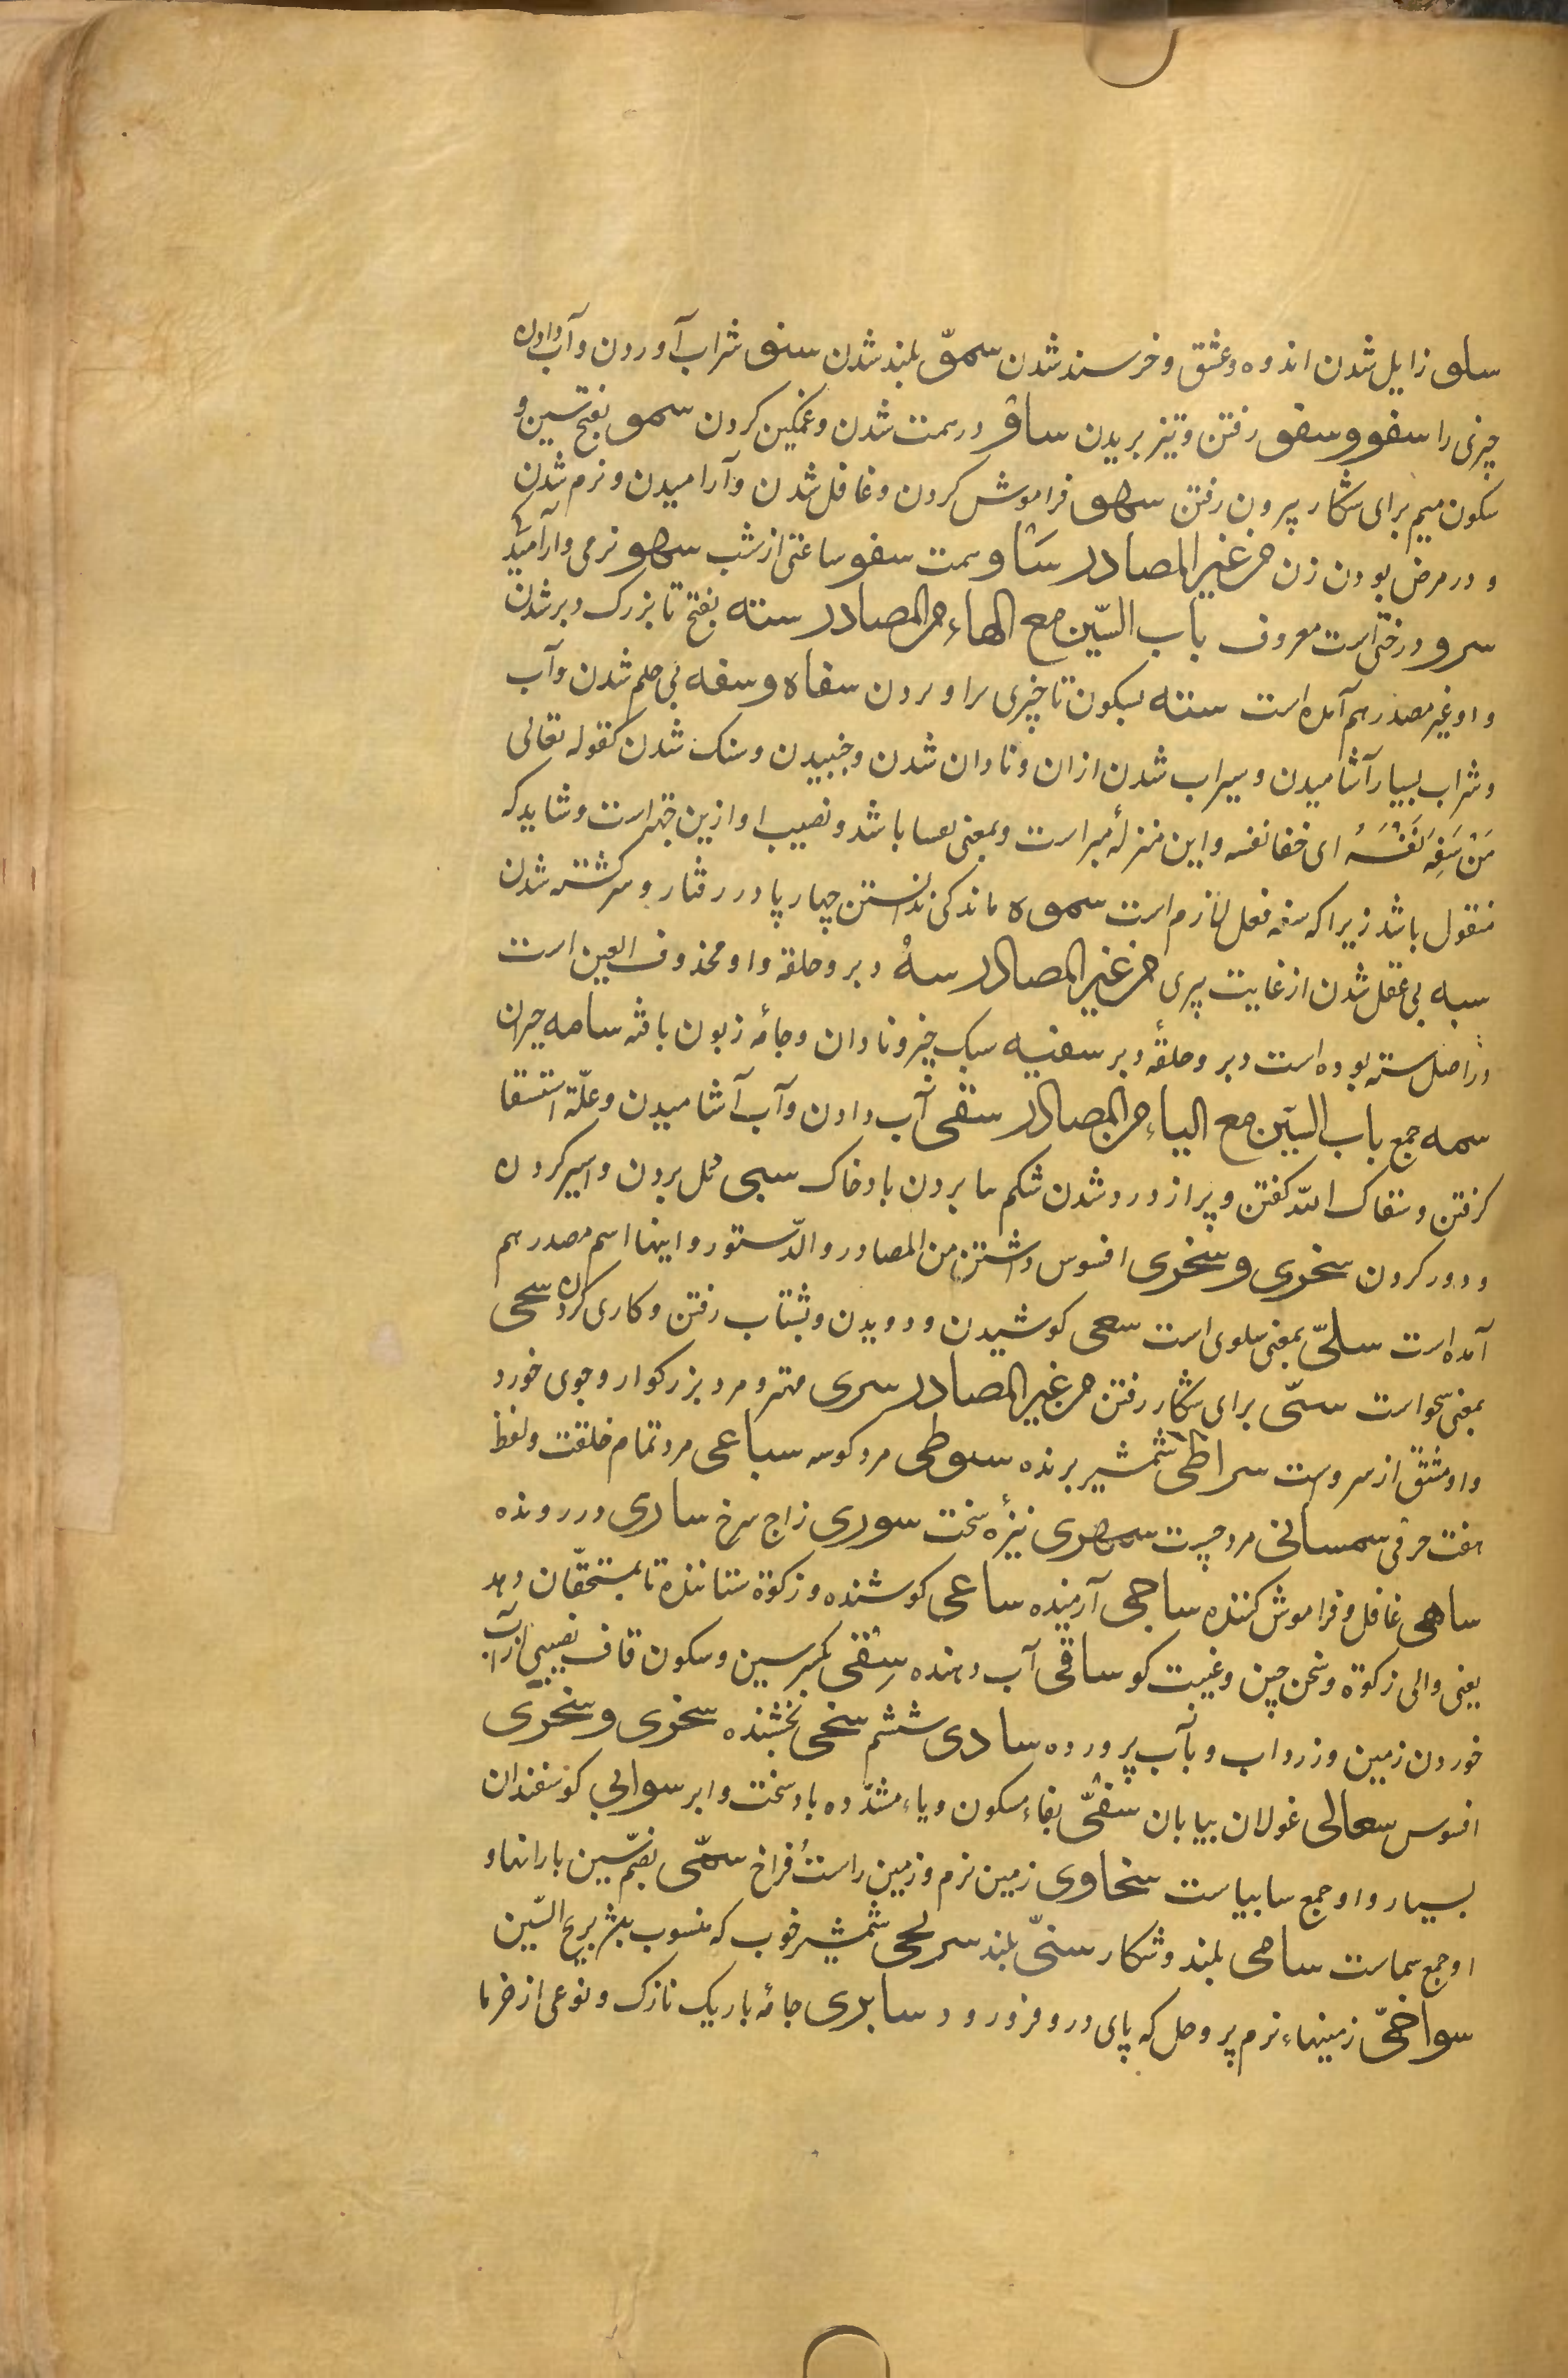 سلو زایل شدن اندوه و عشق و خرسند شدن سموّ بلند شدن سنو شراب آوردن و آب دادن
چیزی را سفو و سفو رفتن و تیز بریدن ساو درسمت شدن و غمگین کردن سمو بفتح سین و
سکون میم برای شکار بیرون رفتن سهو فراموش کردن و غافل شدن و آرامیدن و نرم شدن
و در مرض بودن زن من غیر المصادر سَاو سمت سفو ساعتی از شب سهو نرمی و آرامید
سرو درختی است معروف باب السّین مع الهاء من المصادر سته بفتح تا بزرک دبر شدن
و او غیر مصدر هم آمده است سته بسکون تا چیزی را و بردن سفاه و سفه بی حلم شدن و آب
و شراب بسیار آشامیدن و سیراب شدن ازان و نادان شدن و جنبیدن و سبک شدن کقوله تعالی
مَنْ سَفِهَ نَفْسَهُ ای خفا نفسه و این منزلۀ مبر است و بمعنی نفسا باشد و نصیب او ازین جهتراست و شاید که
منقول باشد زیرا که سفه فعل لازم است سموه ماندکی ندانستن چهارپا در رفتار و سرکشته شدن
سبه بی عقل شدن از غایت پیری من غیر المصادر سهُ دبر و حلقه و او محذوف العین است
دراصل سته بوده است دبر و حلقۀ دبر سفیه سبک خیز و نادان و جامۀ زبون بافته سامه حیران
سمه جمع باب السّین مع الیاء من المصادر سقی آب دادن و آب آشامیدن و علّة استسقا
کرفتن و سقاک الله کفتن و پر از درد شدن شکم سا بردن باد خاک سبی مل بردن و اسیر کردن
و دور کردن سخری و سخری افسوس داشتن من المصادر و الدّستور و اینها اسم مصدر هم
آمده است سلیّ بمعنی سلوی است سعی کوشیدن و دویدن و بشتاب رفتن و کاری کردن سحی
بمعنی سحو است سمّی برای شکار رفتن من غیر المصادر سری مهتر و مرد بزرکوار و جوی خورد
و او مشتق از سروست سراطی شمشیر برنده سوطی مرد کوسه سباعی مرد تمام خلقت و لفظ
هفت حرفی سمسانی مرد چست سمهری نیزۀ سخت سوری زاج سرخ ساری در رونده
ساهی غافل و فراموش کننده ساجی آرمیده ساعی کوشنده و زکوة ستاننده تا بمستحقّان دهد
یعنی والی زکوة و سخن چین و غیبت کو ساقی آب دهنده سِقی بکسر سین و سکون قاف نصیبی از آب
خوردن زمین و زرداب و بآب پرورده سادی ششم سخی بخشنده سخری و سخری
افسوس سعالی غولان بیابان سفیّ بفاء مسکون و یاء مشدّده باد سخت و ابر سوابی کوسفندان
بسیار و او جمع سابیاست سخاوی زمین نرم و زمین راست فراخ سمّی بضمّ سین بارانها و
او جمع سماست سامی بلند و شکار سنیّ بلند سریجی شمشیر خوب که منسوب بشریح السّین
سواخیّ زمینهاء نرم پر وحل که پای درو فرو رود سابری جامۀ باریک نازک و نوعی از خرما